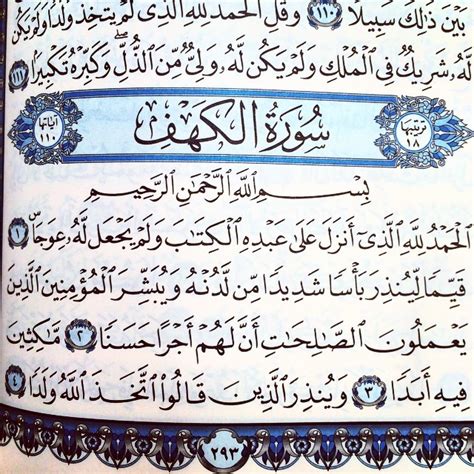 بَيْنَ ذَٰلِكَ سَبِيلًا ١١٠ وَقُلِ ٱلْحَمْدُ لِلَّهِ ٱلَّذِى لَمْ يَتَّخِذْ وَلَدًا وَلَمْ يَكُن
لَّهُۥ شَرِيكٌ فِى ٱلْمُلْكِ وَلَمْ يَكُن لَّهُۥ وَلِىٌّ مِّنَ ٱلذُّلِّ ۖ وَكَبِّرْهُ تَكْبِيرًۢا ١١١
ترتيبها ١٨ سُورَةُ الكَهْفِ آياتها ١١٠
بِسْمِ ٱللَّهِ ٱلرَّحْمَٰنِ ٱلرَّحِيمِ
ٱلْحَمْدُ لِلَّهِ ٱلَّذِىٓ أَنزَلَ عَلَىٰ عَبْدِهِ ٱلْكِتَٰبَ وَلَمْ يَجْعَل لَّهُۥ عِوَجَا ۜ ١
قَيِّمًا لِّيُنذِرَ بَأْسًا شَدِيدًا مِّن لَّدُنْهُ وَيُبَشِّرَ ٱلْمُؤْمِنِينَ ٱلَّذِينَ
يَعْمَلُونَ ٱلصَّٰلِحَٰتِ أَنَّ لَهُمْ أَجْرًا حَسَنًا ٢ مَّٰكِثِينَ
فِيهِ أَبَدًا ٣ وَيُنذِرَ ٱلَّذِينَ قَالُوا۟ ٱتَّخَذَ ٱللَّهُ وَلَدًا ٤
٢٩٣